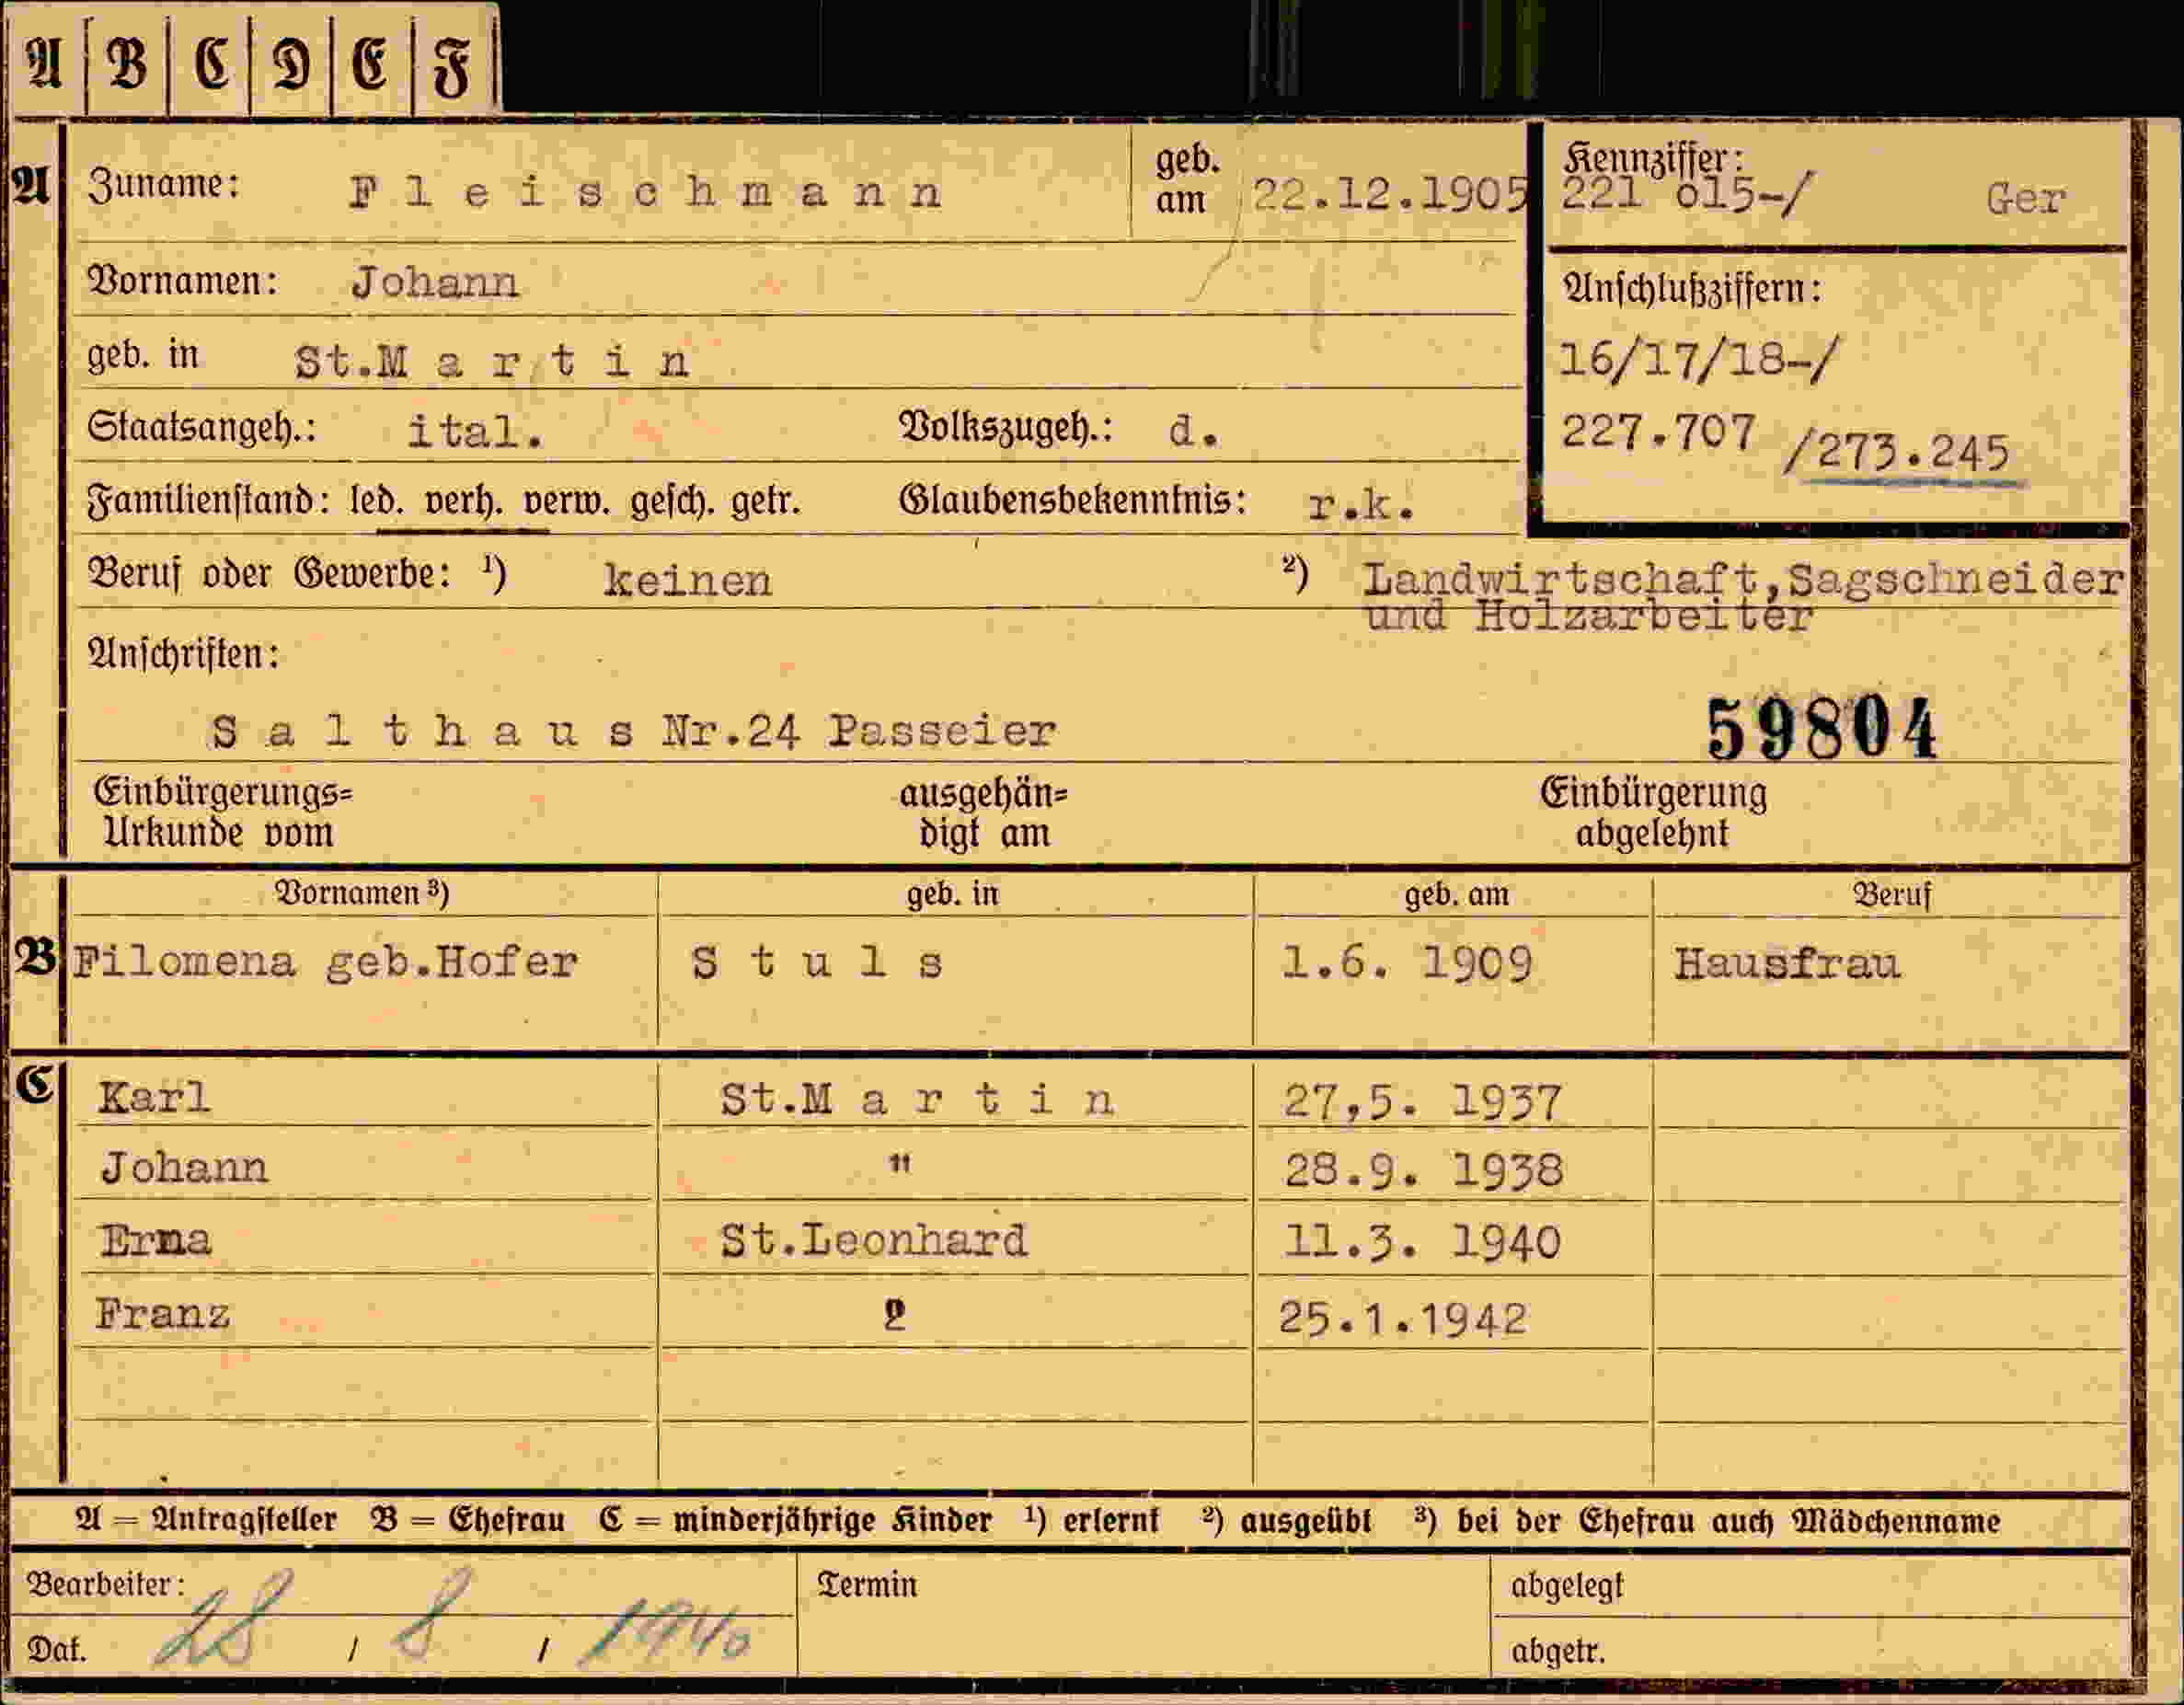 A B C D E F
A Zuname: Fleischmann geb. am 22.12.1905 Kennziffer: 221 o15-/ Ger
Vornamen: Johann
Anschlußziffern:
geb. in St.Martin 16/17/18-/
Staatsangeh.: ital. Volkszugeh.: d. 227.707 /273.245
Familienstand: led. verh. verw. gesch. getr. Glaubensbekenntnis: r.k.
Beruf oder Gewerbe: ¹) keinen ²) Landwirtschaft,Sagschneider
und Holzarbeiter
Anschriften:
Salthaus Nr.24 Passeier 59804
Einbürgerungs= ausgehän= Einbürgerung
Urkunde vom digt am abgelehnt
Vornamen ³) geb. in geb. am Beruf
B Filomena geb.Hofer Stuls 1.6. 1909 Hausfrau
C Karl St.Martin 27,5. 1937
Johann " 28.9. 1938
Erna St.Leonhard 11.3. 1940
Franz 25.1.1942
A = Antragsteller B = Ehefrau C = minderjährige Kinder ¹) erlernt ²) ausgeübt ³) bei der Ehefrau auch Mädchenname
Bearbeiter: Termin abgelegt
Dat. 28 / 8 / 1940 abgetr.